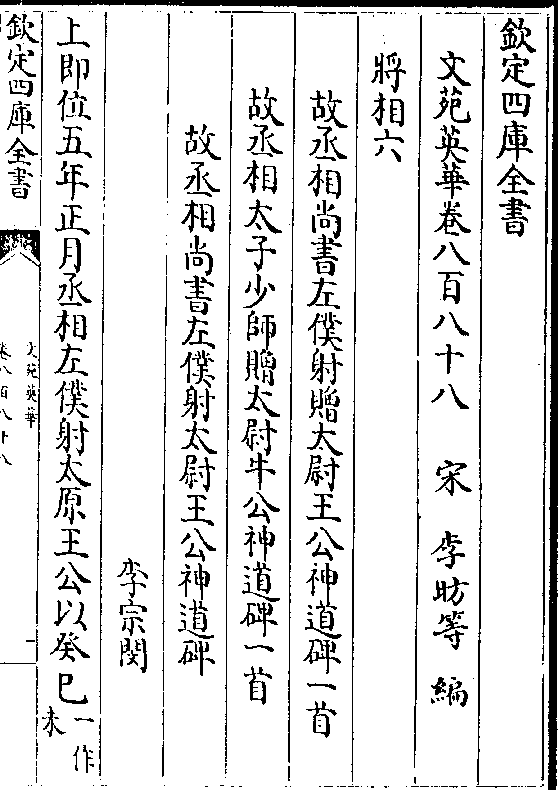 欽定四庫全書
文苑英華卷八百八十八 宋 李昉等 編
將相六
故丞相尚書左僕射贈太尉王公神道碑一首
故丞相太子少師贈太尉牛公神道碑一首
故丞相尚書左僕射太尉王公神道碑
李宗閔
上即位五年正月丞相左僕射太原王公以癸巳一作未
欽定四庫全書
文苑英華
卷八百八十八
一